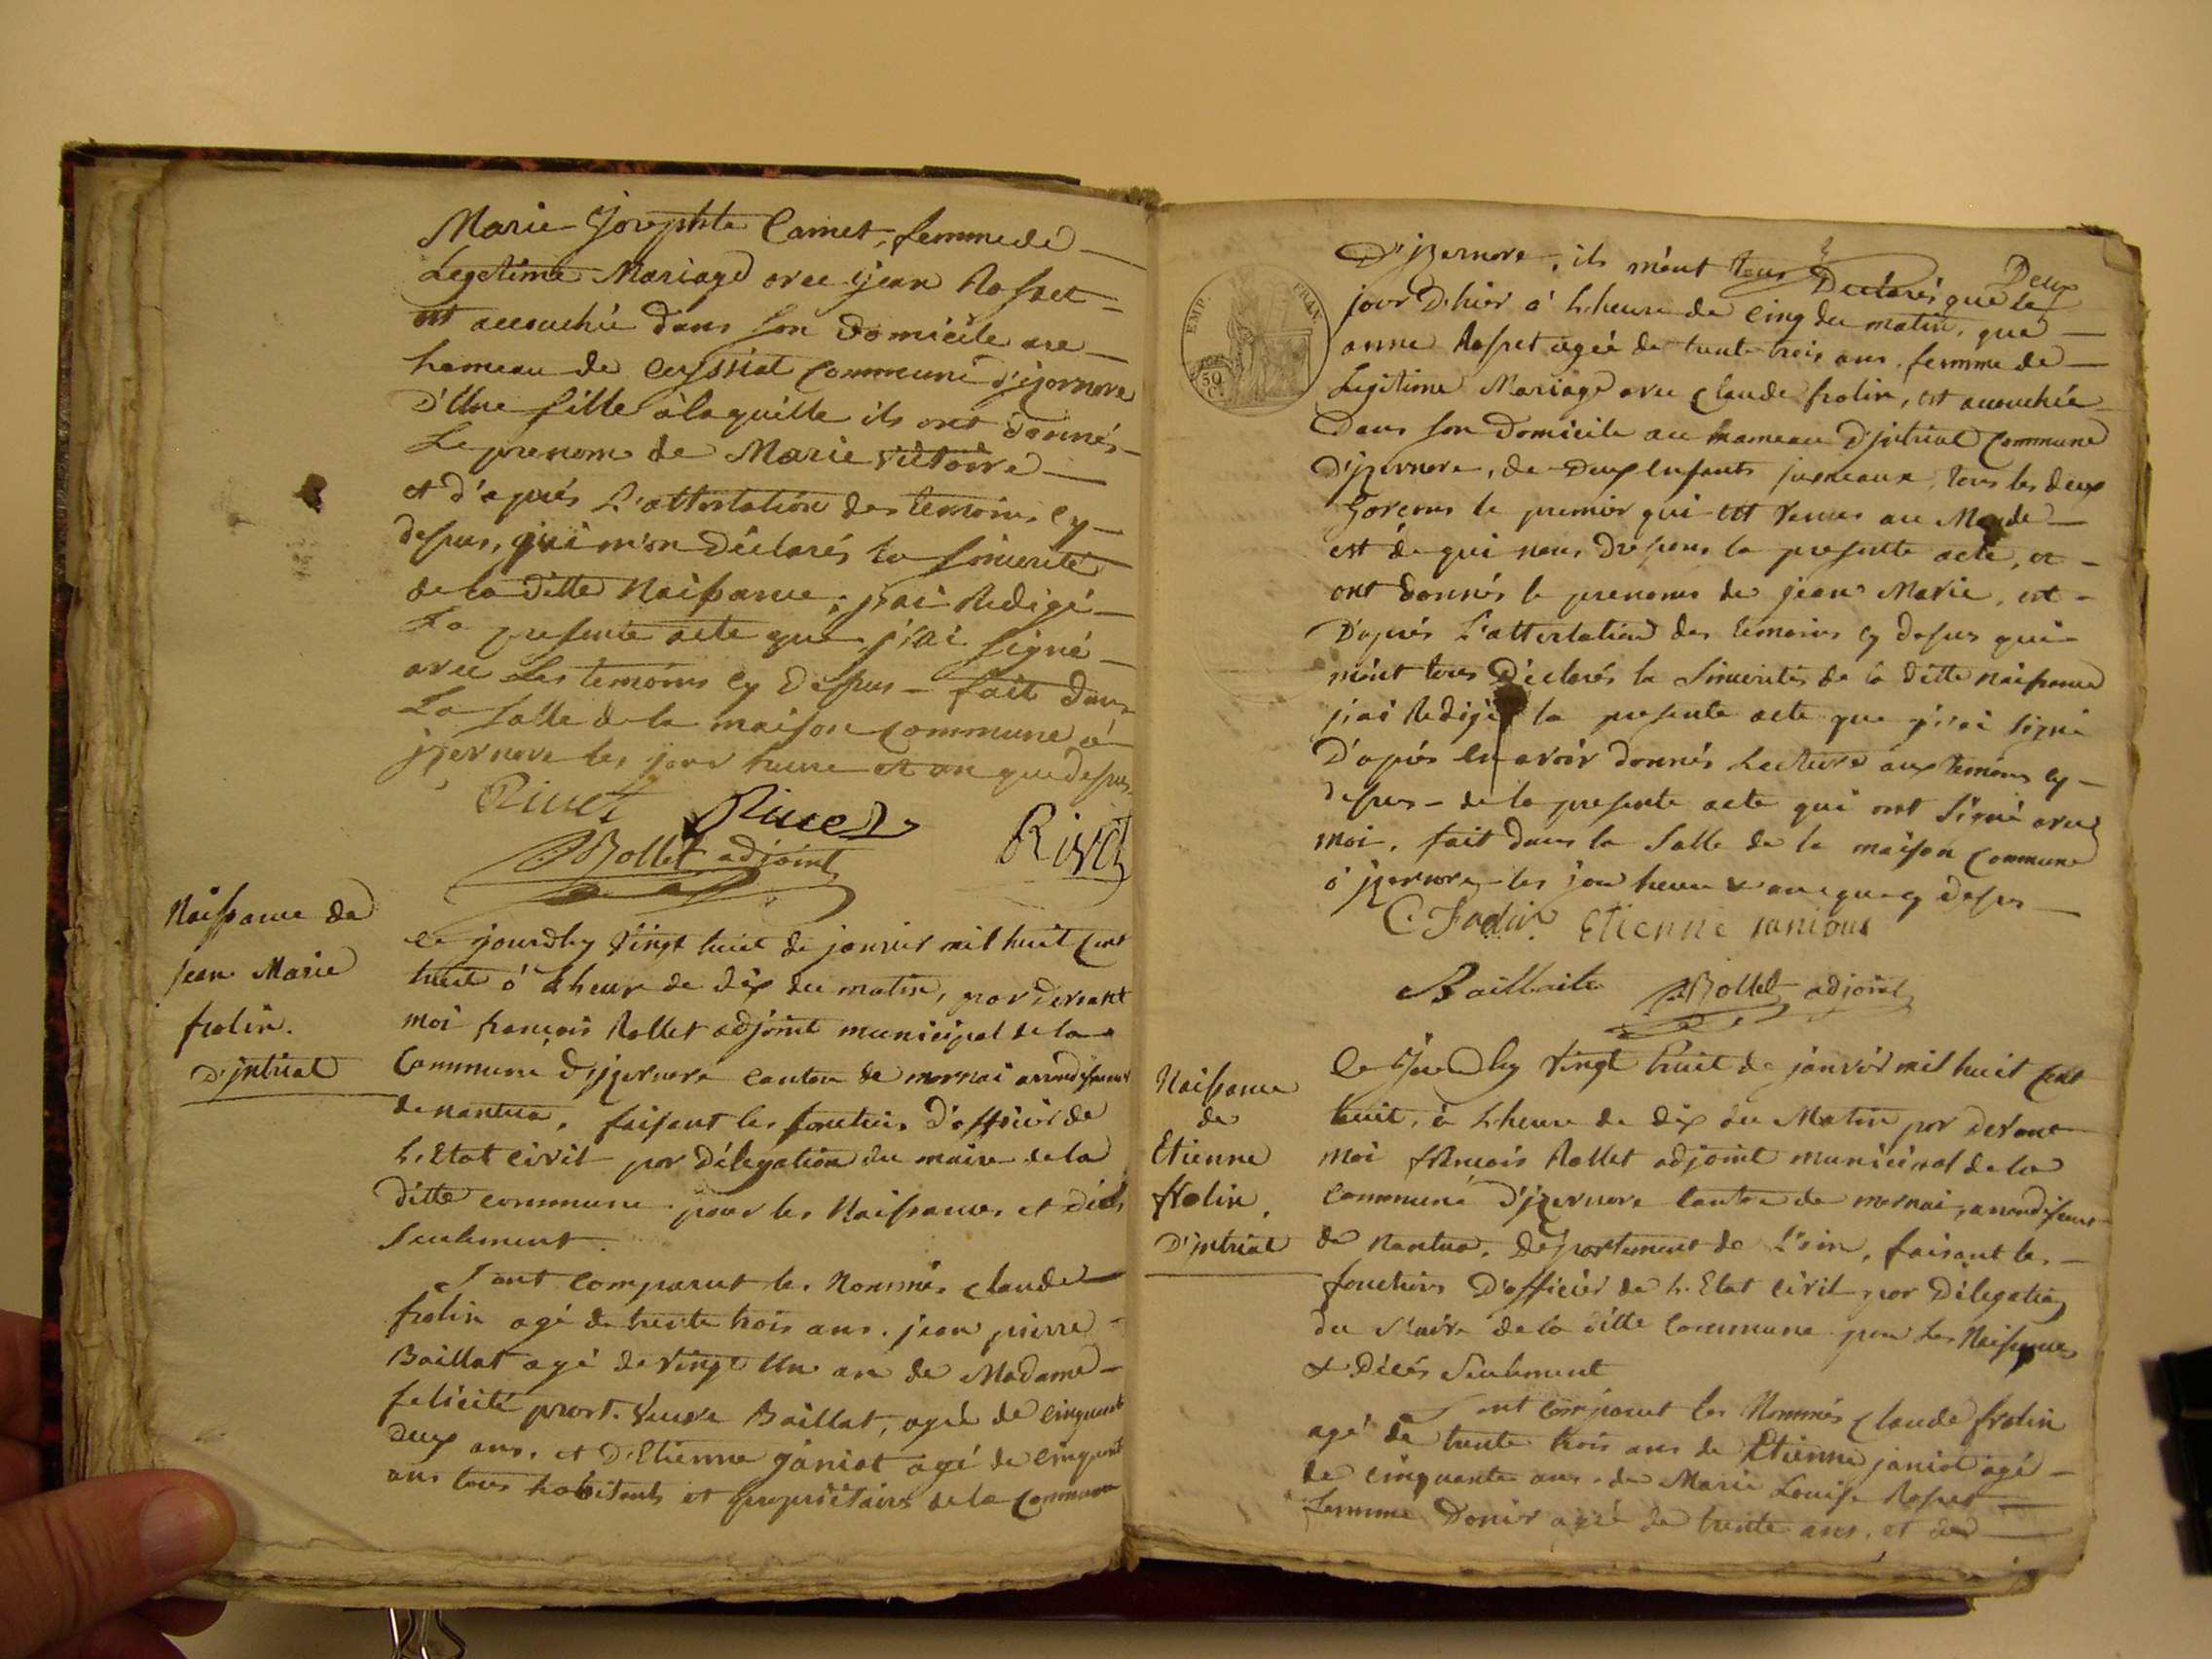 Marie Josephte Carnet, femme de
Legetime Mariage avec jean Rosset
est accouchée dans son domicile au
hameau de Ceyssiat Commune d'jzernore
D'Une fille à laquelle ils ont donnés
Le prenom de Marie victoire
et d'aprés L'attestation des temoins cy
dessus, qui m'on Déclarés la sincerité
de la ditte Naissance, j'ai Redigé
La presente acte que j'ai signé
avec Les temoins cy Dessus - fait dans
La salle de la maison commune à
jzernore les jour heure et an que dessus
Rivet Rivet Rivet
Rollet adjoint
Naissance de
jean Marie
frolin.
D'jntriat
Ce jourdhy Vingt huit de janvier mil huit cent
huit à L'heure de dix du matin, par devant
moi françois Rollet adjoint municipal de la
Commune D'jzernore canton de mornai arrondissement
de nantua, faisant les fonctions D'officier de
L'Etat civil par Délegation du maire de la
ditte commune pour les Naissances et décés
Seulement.
Sont comparut les Nommés claude
frolin agé de trente trois ans. jean pierre
Baillat agé de vingt Un an de Madame
felicité prost. veuve Baillat, agée de cinquante
deux ans, et D'Etienne janiot agé de cinquante
ans tous habitants et propriétaires de la commune
Deux
D'jzernore, ils m'ont tous Declarés que le
jour D'hier à L'heure de cinq du matin, que
anne Rosset agée de trente trois ans. femme de
Legitime Mariage avec claude frolin, est accouchée
Dans son domicile au hameau D'jntriat commune
D'jzernore, de deux enfants jumeaux, tous les deux
Garçons le premier qui est venus au Monde
est de qui nous dressons la presente acte, et
ont donnés le prenoms de jean Marie, et
D'aprés L'attestation des temoins cy dessus qui
m'ont tous Déclarés la sincerités de la ditte naissance
j'ai Redigé la presente acte que j'ai signé
D'aprés en avoir donnés Lecture aux temoins cy
dessus - de la presente acte qui ont signé avec
moi. fait dans la salle de la maison commune
à jzernore les jour heure & an que cy dessus
EMP. FRAN.
50
C.
Etienne
Rollet adjoint
Naissance
de
Etienne
frolin.
D'jntriat
Ce Jourdhy Vingt huit de janvier mil huit cent
huit, à L'heure de dix du Matin par devant
moi françois Rollet adjoint municipal de la
commune D'jzernore canton de mornai, arrondissement
de Nantua, departement de L'ain, faisant les
fonctions D'officier de L'Etat civil par Délegation
du Maire de la ditte Commune pour Les Naissances
& Décés Seulement
Sont comparut les Nommés claude frolin
agé de trente trois ans de Etienne janiot agé
de cinquante ans. de Marie Louise Rosset
femme agée de trente ans, et de